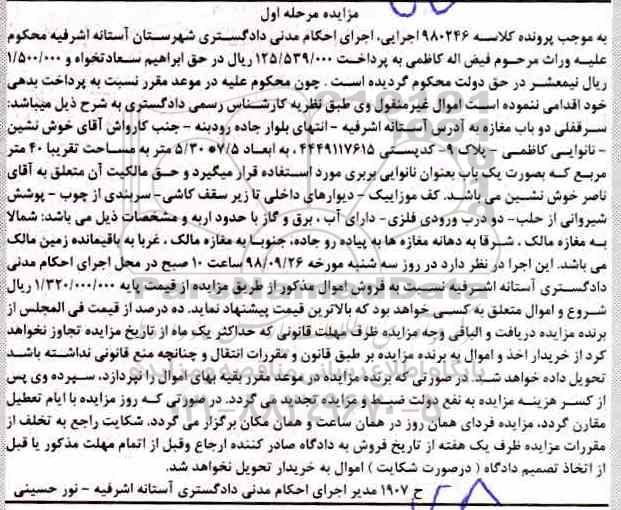 مزایده مرحله اول
به موجب پرونده کلاسه ۹۸۰۲۴۶ اجرایی، اجرای احکام مدنی دادگستری شهرستان آستانه اشرفیه محکوم
علیه وراث مرحوم فیض اله کاظمی به پرداخت ۱۲۵/۵۳۹/۰۰۰ ریال در حق ابراهیم سعادتخواه و ۱/۵۰۰/۰۰۰
ریال نیمعشر در حق دولت محکوم گردیده است . چون محکوم علیه در موعد مقرر نسبت به پرداخت بدهی
خود اقدامی ننموده است اموال غیرمنقول وی طبق نظریه کارشناس رسمی دادگستری به شرح ذیل میباشد:
سرقفلی دو باب مغازه به آدرس آستانه اشرفیه - انتهای بلوار جاده رودبنه - جنب کارواش آقای خوش نشین
- نانوایی کاظمی - پلاک ۹- کدپستی ۴۴۴۹۱۱۷۶۱۵ به ابعاد ۷/۵*۵/۳۰ متر به مساحت تقریبا ۴۰ متر
مربع که بصورت یک باب بعنوان نانوایی بربری مورد استفاده قرار میگیرد و حق مالکیت آن متعلق به آقای
ناصر خوش نشین می باشد. کف موزاییک - دیوارهای داخلی تا زیر سقف کاشی- سربندی از چوب - پوشش
شیروانی از حلب- دو درب ورودی فلزی- دارای آب ، برق و گاز با حدود اربه و مشخصات ذیل می باشد: شمالا
به مغازه مالک ، شرقا به دهانه مغازه ها به پیاده رو جاده، جنوبا به مغازه مالک ، غربا به باقیمانده زمین مالک
می باشد. این اجرا در نظر دارد در روز سه شنبه مورخه ۹۸/۰۹/۲۶ ساعت ۱۰ صبح در محل اجرای احکام مدنی
دادگستری آستانه اشرفیه نسبت به فروش اموال مذکور از طریق مزایده از قیمت پایه ۱/۳۲۰/۰۰۰/۰۰۰ ریال
شروع و اموال متعلق به کسی خواهد بود که بالاترین قیمت پیشنهاد نماید. ده درصد از قیمت فی المجلس از
برنده مزایده دریافت و الباقی وجه مزایده ظرف مهلت قانونی که حداکثر یک ماه از تاریخ مزایده تجاوز نخواهد
کرد از خریدار اخذ و اموال به برنده مزایده بر طبق قانون و مقررات انتقال و چنانچه منع قانونی نداشته باشد
تحویل داده خواهد شد. در صورتی که برنده مزایده در موعد مقرر بقیه بهای اموال را نپردازد، سپرده وی پس
از کسر هزینه مزایده به نفع دولت ضبط و مزایده تجدید می گردد. در صورتی که روز مزایده با ایام تعطیل
مقارن گردد، مزایده فردای همان روز در همان ساعت و همان مکان برگزار می گردد. شکایت راجع به تخلف از
مقررات مزایده ظرف یک هفته از تاریخ فروش به دادگاه صادر کننده ارجاع وقبل از اتمام مهلت مذکور یا قبل
از اتخاذ تصمیم دادگاه ( درصورت شکایت ) اموال به خریدار تحویل نخواهد شد.
ح ۱۹۰۷ مدیر اجرای احکام مدنی دادگستری آستانه اشرفیه - نور حسینی